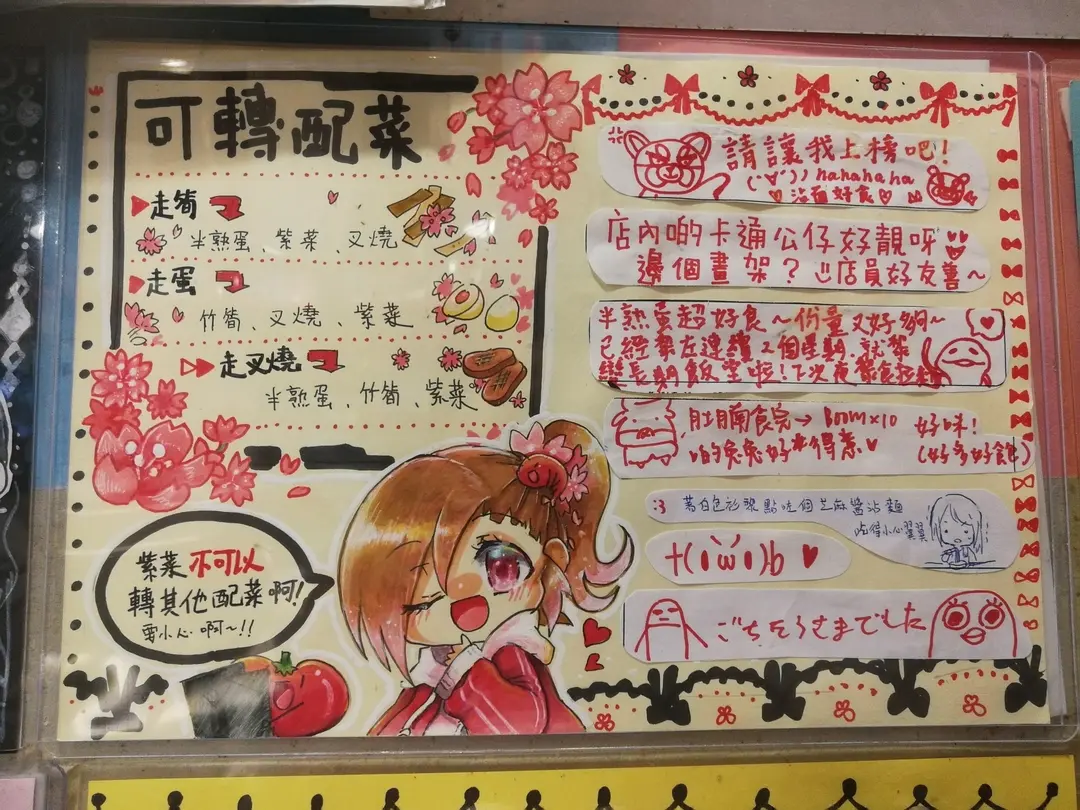 可轉配菜
走筍
半熟蛋、紫菜、叉燒
走蛋
竹筍、叉燒、紫菜
走叉燒
半熟蛋、竹筍、紫菜
紫菜不可以
轉其他配菜啊!
要小心啊~!!
請讓我上榜吧!
hahahaha
沾面好食
店內啲卡通公仔好靚呀
邊個畫架?店員好友善~
半熟蛋超好食~份量又好夠~
已經黎左連續2個星期,就黎
變長期飯堂啦!下次再黎食
肚腩食完→ Boom x10 好味!
啲兔兔好得意 (好多好食)
:3 著白色衫黎點吃個芝麻醬沾麵
吃得小心翼翼
ごちそうさまでした